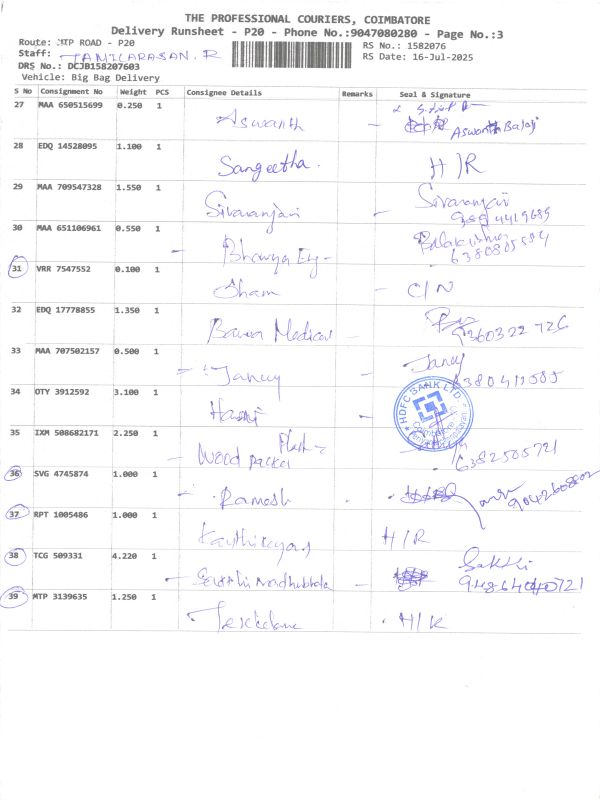 THE PROFESSIONAL COURIERS, COIMBATORE
Delivery Runsheet - P20 - Phone No.:9047080280 - Page No.:3
Route: MTP ROAD - P20
RS No.: 1582076
Staff: TAMILARASAN.R
RS Date: 16-Jul-2025
DRS No.: DCJB158207603
Vehicle: Big Bag Delivery
S No Consignment No Weight PCS Consignee Details Remarks Seal & Signature
27 MAA 650515699 0.250 1 Aswanth - Aswanth Balaji
28 EDQ 14528095 1.100 1 Sangeetha. H/R
29 MAA 709547328 1.550 1 Sivaranjani - Sivaranjani
30 MAA 651106961 0.550 1 - Bhavya
31 VRR 7547552 0.100 1 Sham - C/N
32 EDQ 17778855 1.350 1 Bawa Medical - 9360322726
33 MAA 707502157 0.500 1 Jancy - Jancy
34 OTY 3912592 3.100 1 -
HDFC BANK LTD.
Coimbatore
35 IXM 508682171 2.250 1 - Wood 6382505721
36 SVG 4745874 1.000 1 - Ramesh
37 RPT 1005486 1.000 1 H/R
38 TCG 509331 4.220 1 - Sakthi
39 MTP 3139635 1.250 1 - H/R